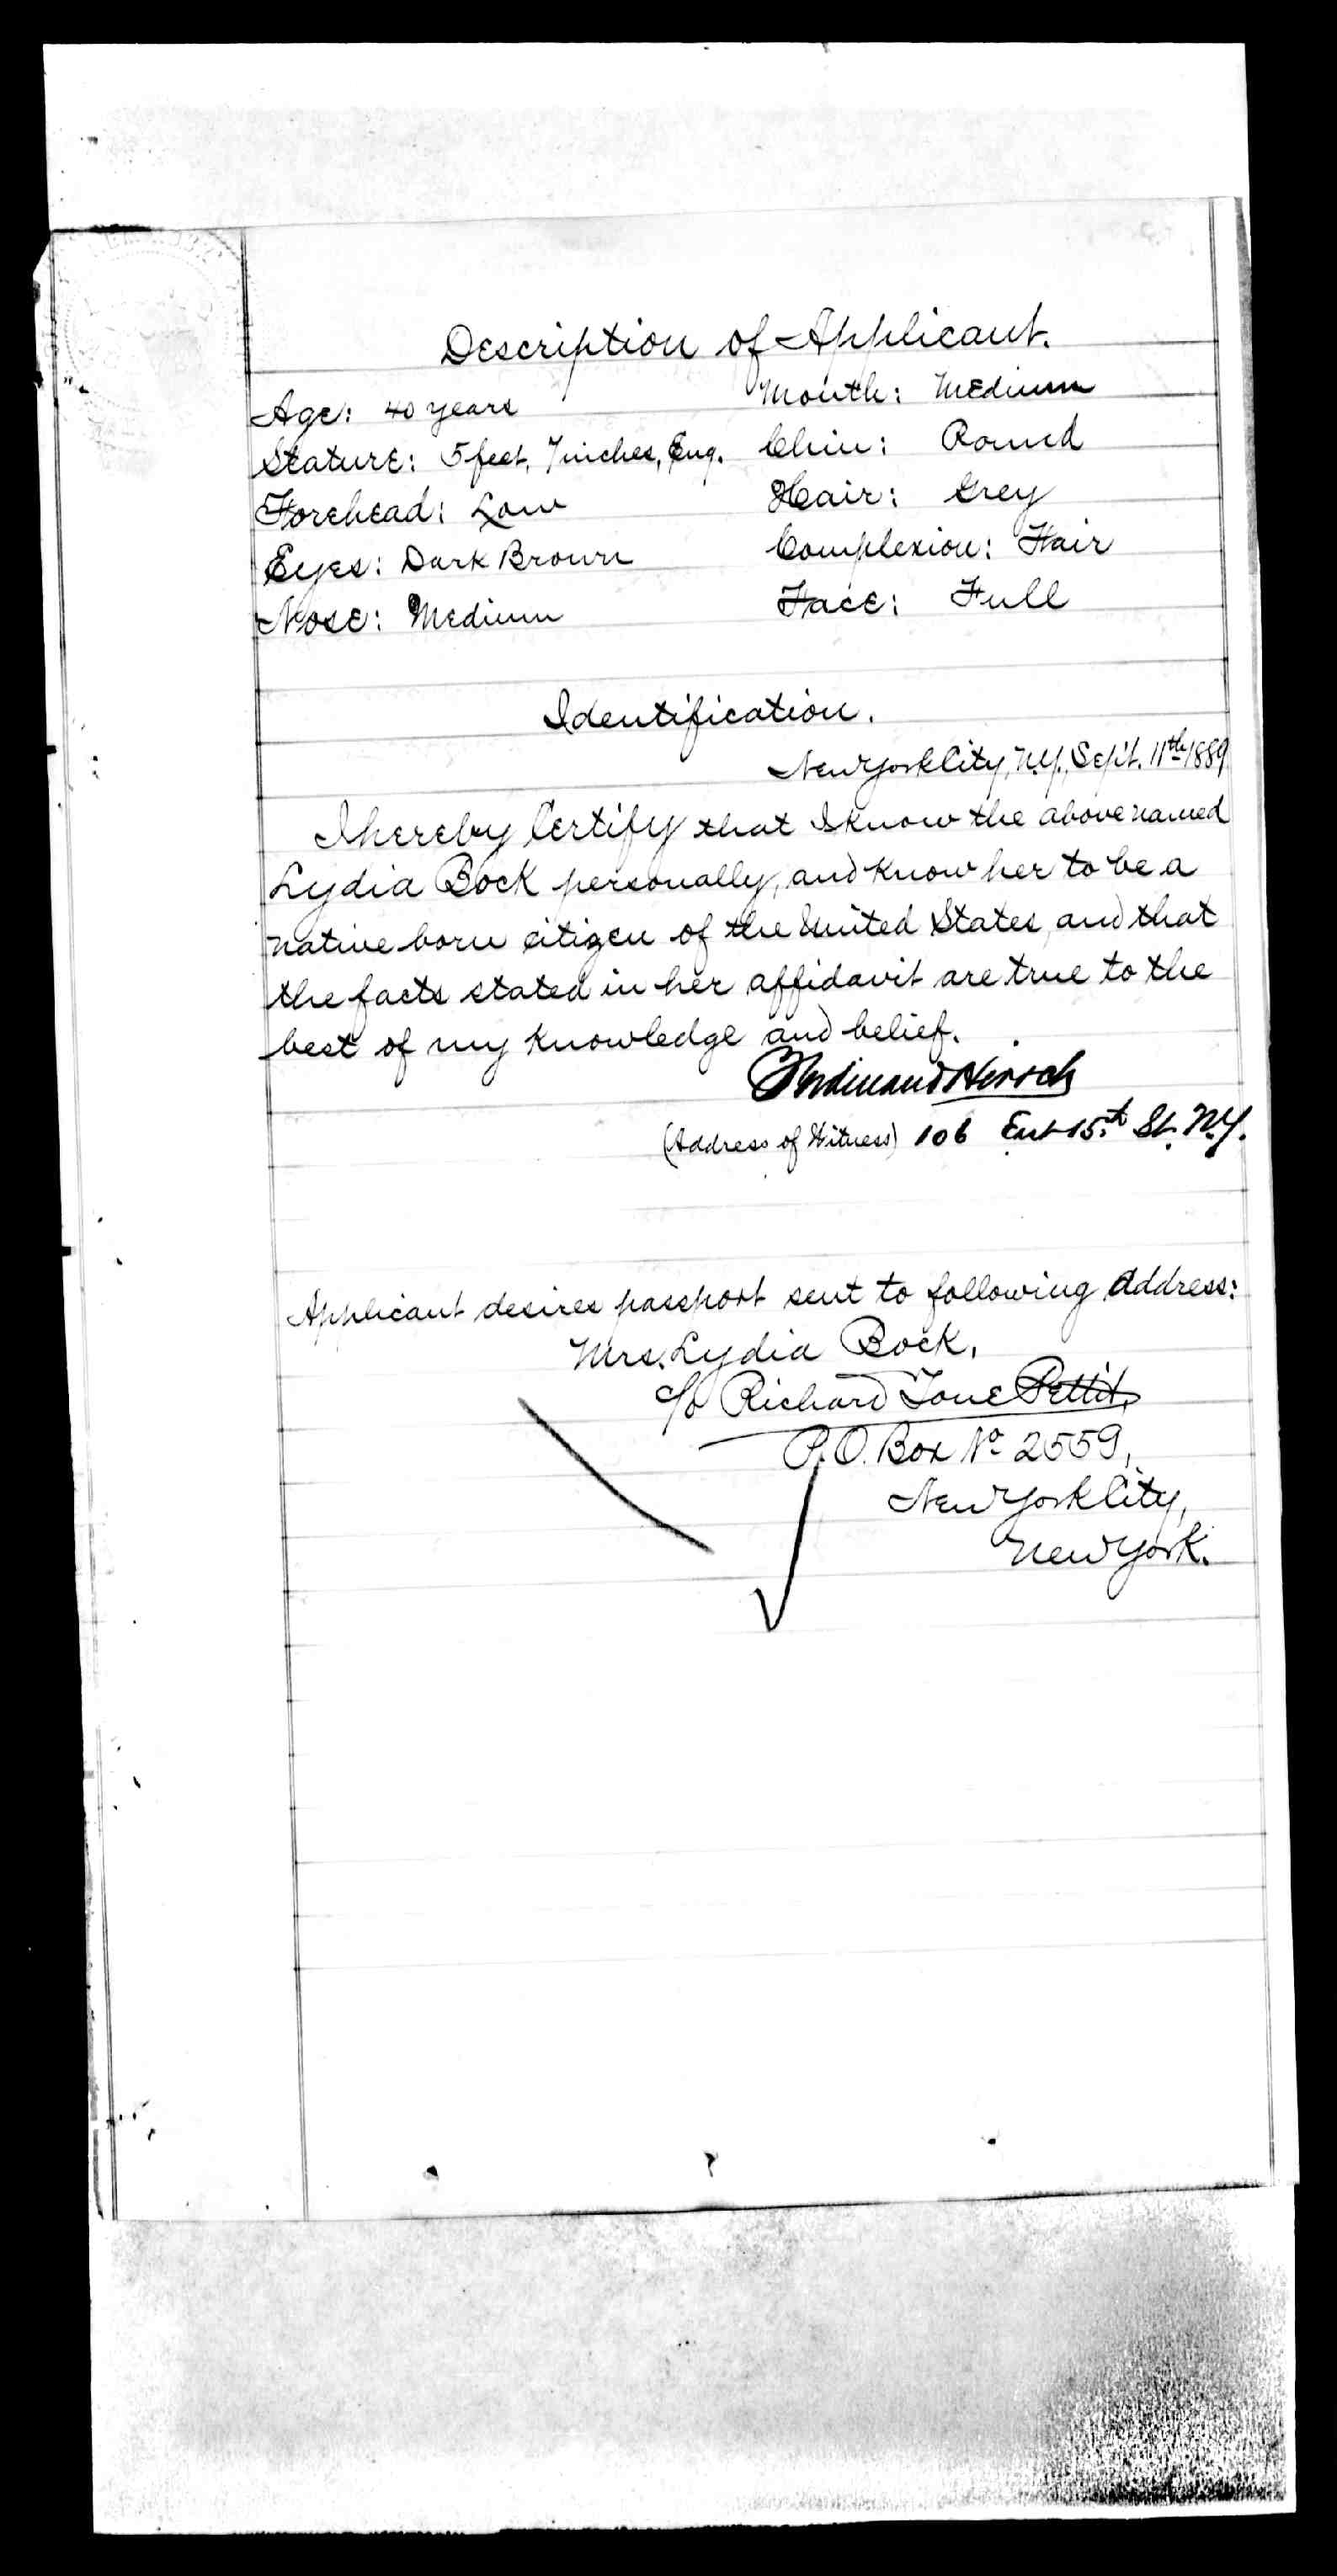 Description of Applicant.
Age: 40 years Mouth: Medium
Stature: 5 feet, 7 inches, Eng. Chin: Round
Forehead: Low Hair: Grey
Eyes: Dark Brown Complexion: Fair
Nose: Medium Face: Full
Identification.
New York City, N.Y., Sept. 11th 1889
I hereby Certify that I know the above named
Lydia Bock personally, and know her to be a
native born citizen of the United States, and that
the facts stated in her affidavit are true to the
best of my knowledge and belief.
Ferdinand Hirsch
(Address of Witness) 106 East 15th St. N.Y.
Applicant desires passport sent to following Address:
Mrs. Lydia Bock,
c/o Richard Tone Pettit,
P.O. Box No 2559,
New York City,
New York.